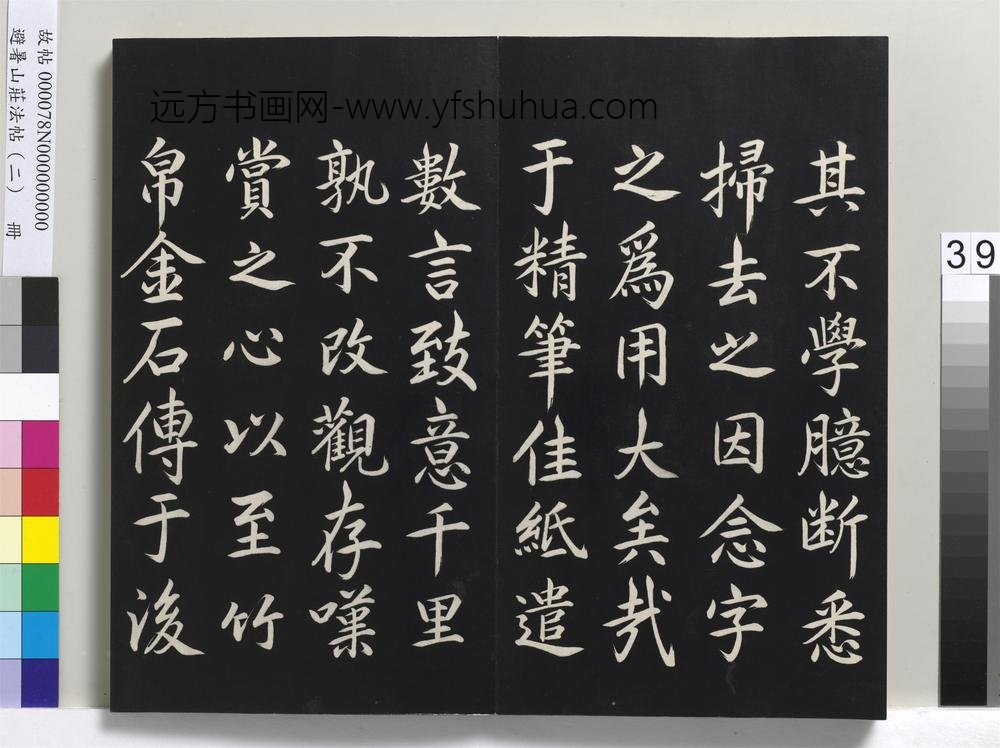 其不學臆断悉
掃去之因念字
之爲用大矣哉
于精筆佳紙遣
數言致意千里
孰不改觀存嘆
賞之心以至竹
帛金石傳于後
远方书画网-www.yfshuhua.com
故帖 000078N000000000
避暑山莊法帖（二） 冊
39